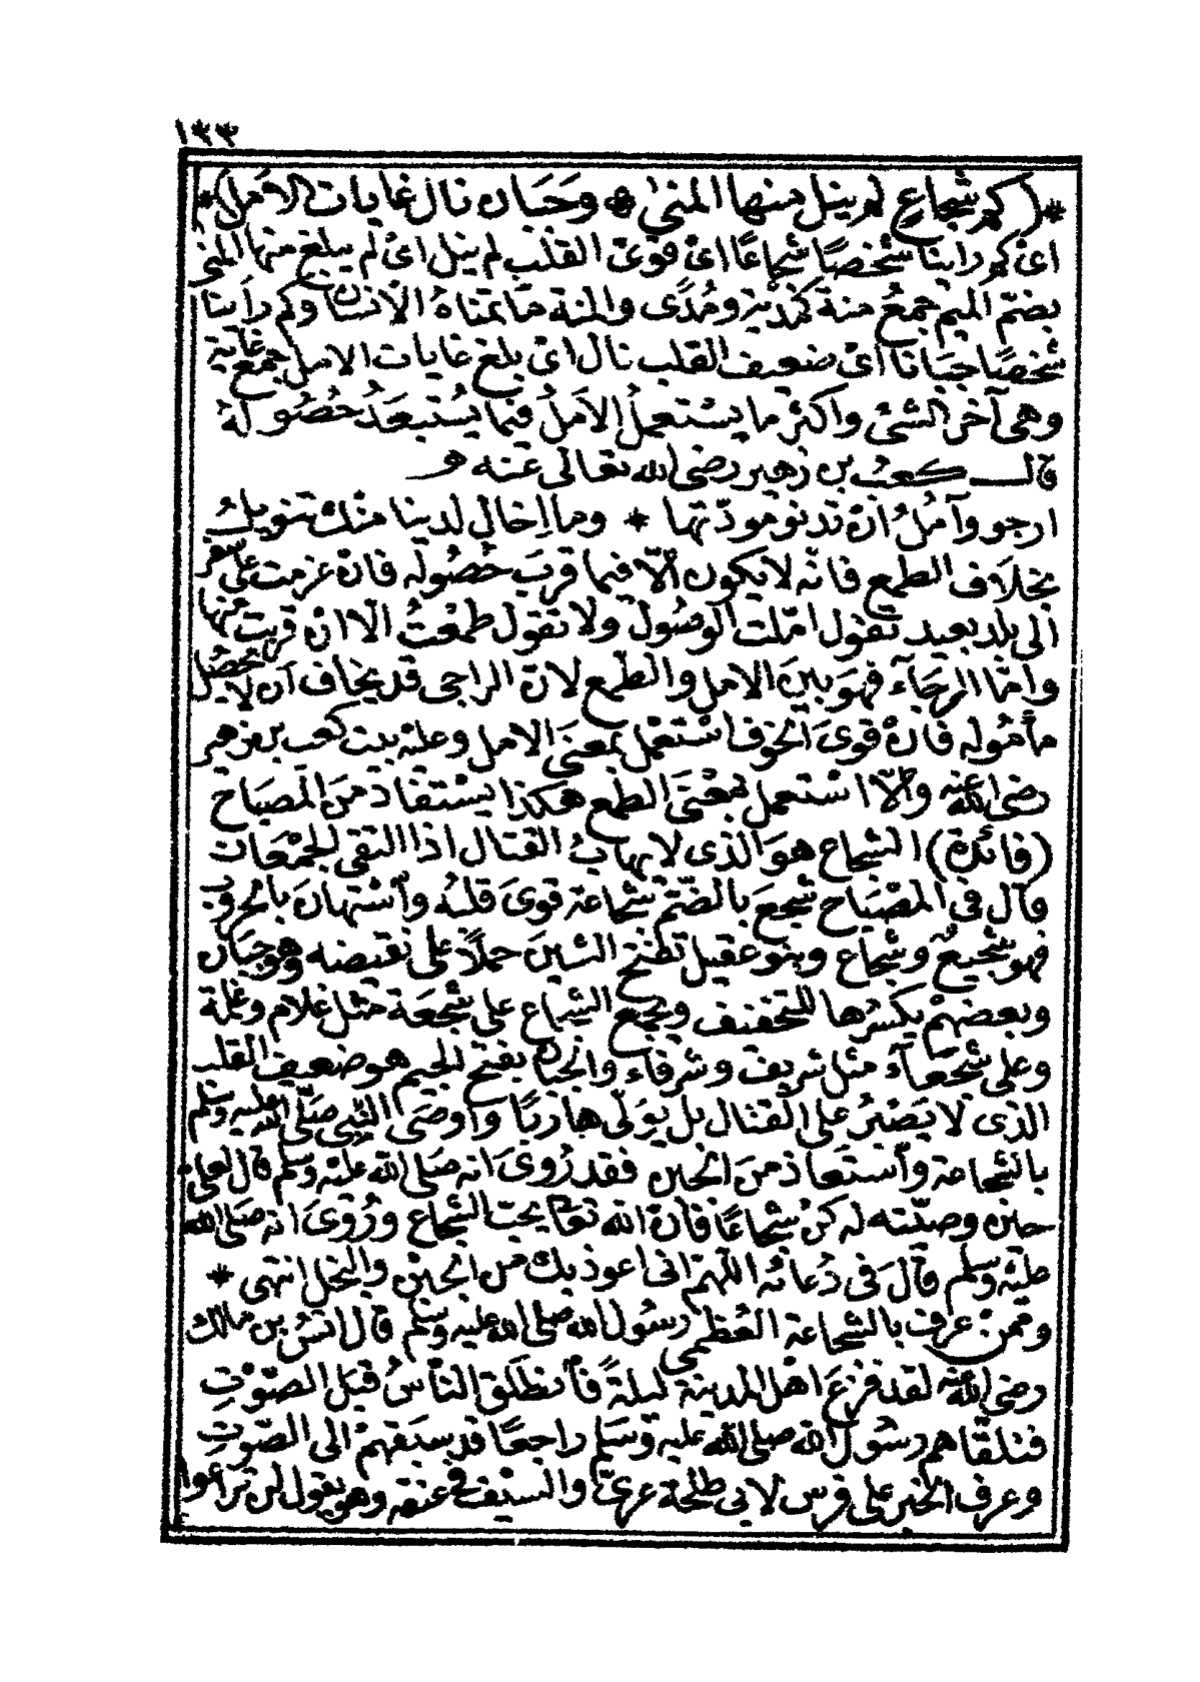 ١٣٣
* (كم شجاع لم ينل منها المنى * وجبان نال غايات الامل) *
اى كم راينا شخصًا شجاعًا اى قوى القلب لم ينل اى لم يبلغ منها المنى
بضم الميم جمع منة كمدية ومُدًى والمنة ما يتمناه الانسان وكم رأينا
شخصًا جبانا اى ضعيف القلب نال اى بلغ غايات الامل جمع غاية
وهى آخر الشئ واكثر ما يستعمل الامل فيما يُستبعَد حُصُوله
قال كعب بن زهير رضى الله تعالى عنه
ارجو وآمُلُ ان تدنو مودّتها * وما إخال لدينا منك تنويل
بخلاف الطمع فانه لا يكون الّا فيما قرب حصُوله فان عزمت على سفر
الى بلد بعيد تقول امّلت الوصُول ولا تقول طمعتُ الّا ان قربت منها
وامّا الرجاء فهو بين الامل والطمع لان الراجى قد يخاف ان لا يحصل
مأموله فان قوى الخوف استعمل بمعنى الامل وعليه بيت كعب بن زهير
رضى الله عنه والّا استعمل بمعنى الطمع هكذا يستفاد من المصباح
(فائدة) الشجاع هو الذى لا يهابُ القتال اذا التقى الجمعان
قال فى المصباح شجع بالضم شجاعة قوى قلبُه وأستهان بالحروب
فهو شجيع وشجاع وبنو عقيل تفتح الشين حملًا على نقيضه وهو جبان
وبعضهم يكسرها للتخفيف ويجمع الشجاع على شجعة مثل غلام وغلمة
وعلى شجعآء مثل شريف وشرفاء والجبان بفتح الجيم هو ضعيف القلب
الذى لا يَصْبرُ على القتال بل يولى هاربًا وأوصى النبى صلّى الله عليه وسلم
بالشجاعة وأستعاذ من الجبن فقد رُوِىَ انه صلى الله عليه وسلم قال لعلىّ
حين وصيّته له كن شجاعًا فان الله تعا يحبّ الشجاع ورُوِىَ انه صلى الله
عليه وسلم قال فى دُعائه اللهمّ انى اعوذ بك من الجبن والبخل انتهى *
وممن عرف بالشجاعة العظمى رسول الله صلى الله عليه وسلم قال انس بن مالك
رضى الله عنه لقد فزع اهل المدينة ليلةً فأنطلق الناسُ قبل الصوتِ
فتلقّاهم رسول الله صلى الله عليه وسلم راجعًا قد سبقهم الى الصوتِ
وعرف الخبر على فرس لابى طلحة عرىّ والسيف فى عنقه وهو يقول لن تراعوا